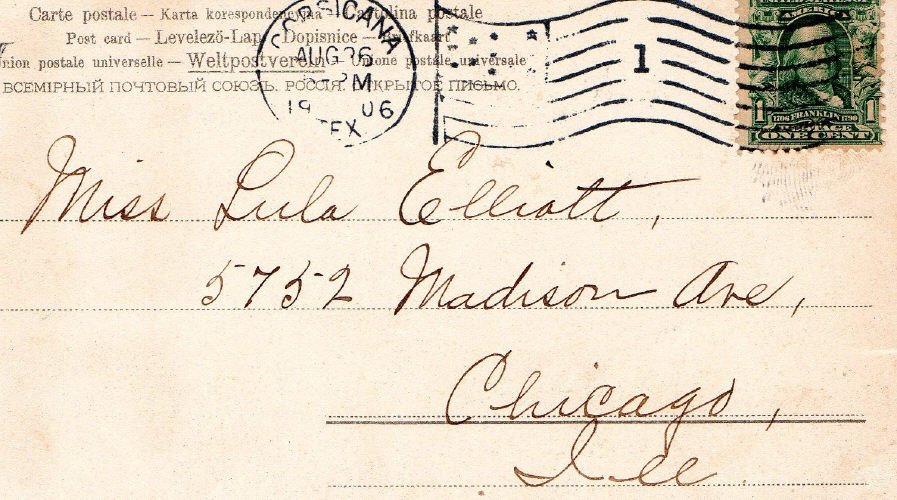 Carte postale — Karta korespondencyjna — Cartolina postale
Post card — Levelező-Lap — Dopisnice — Briefkaart
Union postale universelle — Weltpostverein — Unione postale universale
ВСЕМІРНЫЙ ПОЧТОВЫЙ СОЮЗЪ. РОССІЯ. ОТКРЫТОЕ ПИСЬМО.
CORSICANA
AUG 26
PM
1906
TEX
1
1 1
1706 FRANKLIN 1790
POSTAGE
ONE CENT
Miss Lula Elliott,
5752 Madison Ave,
Chicago,
Ill